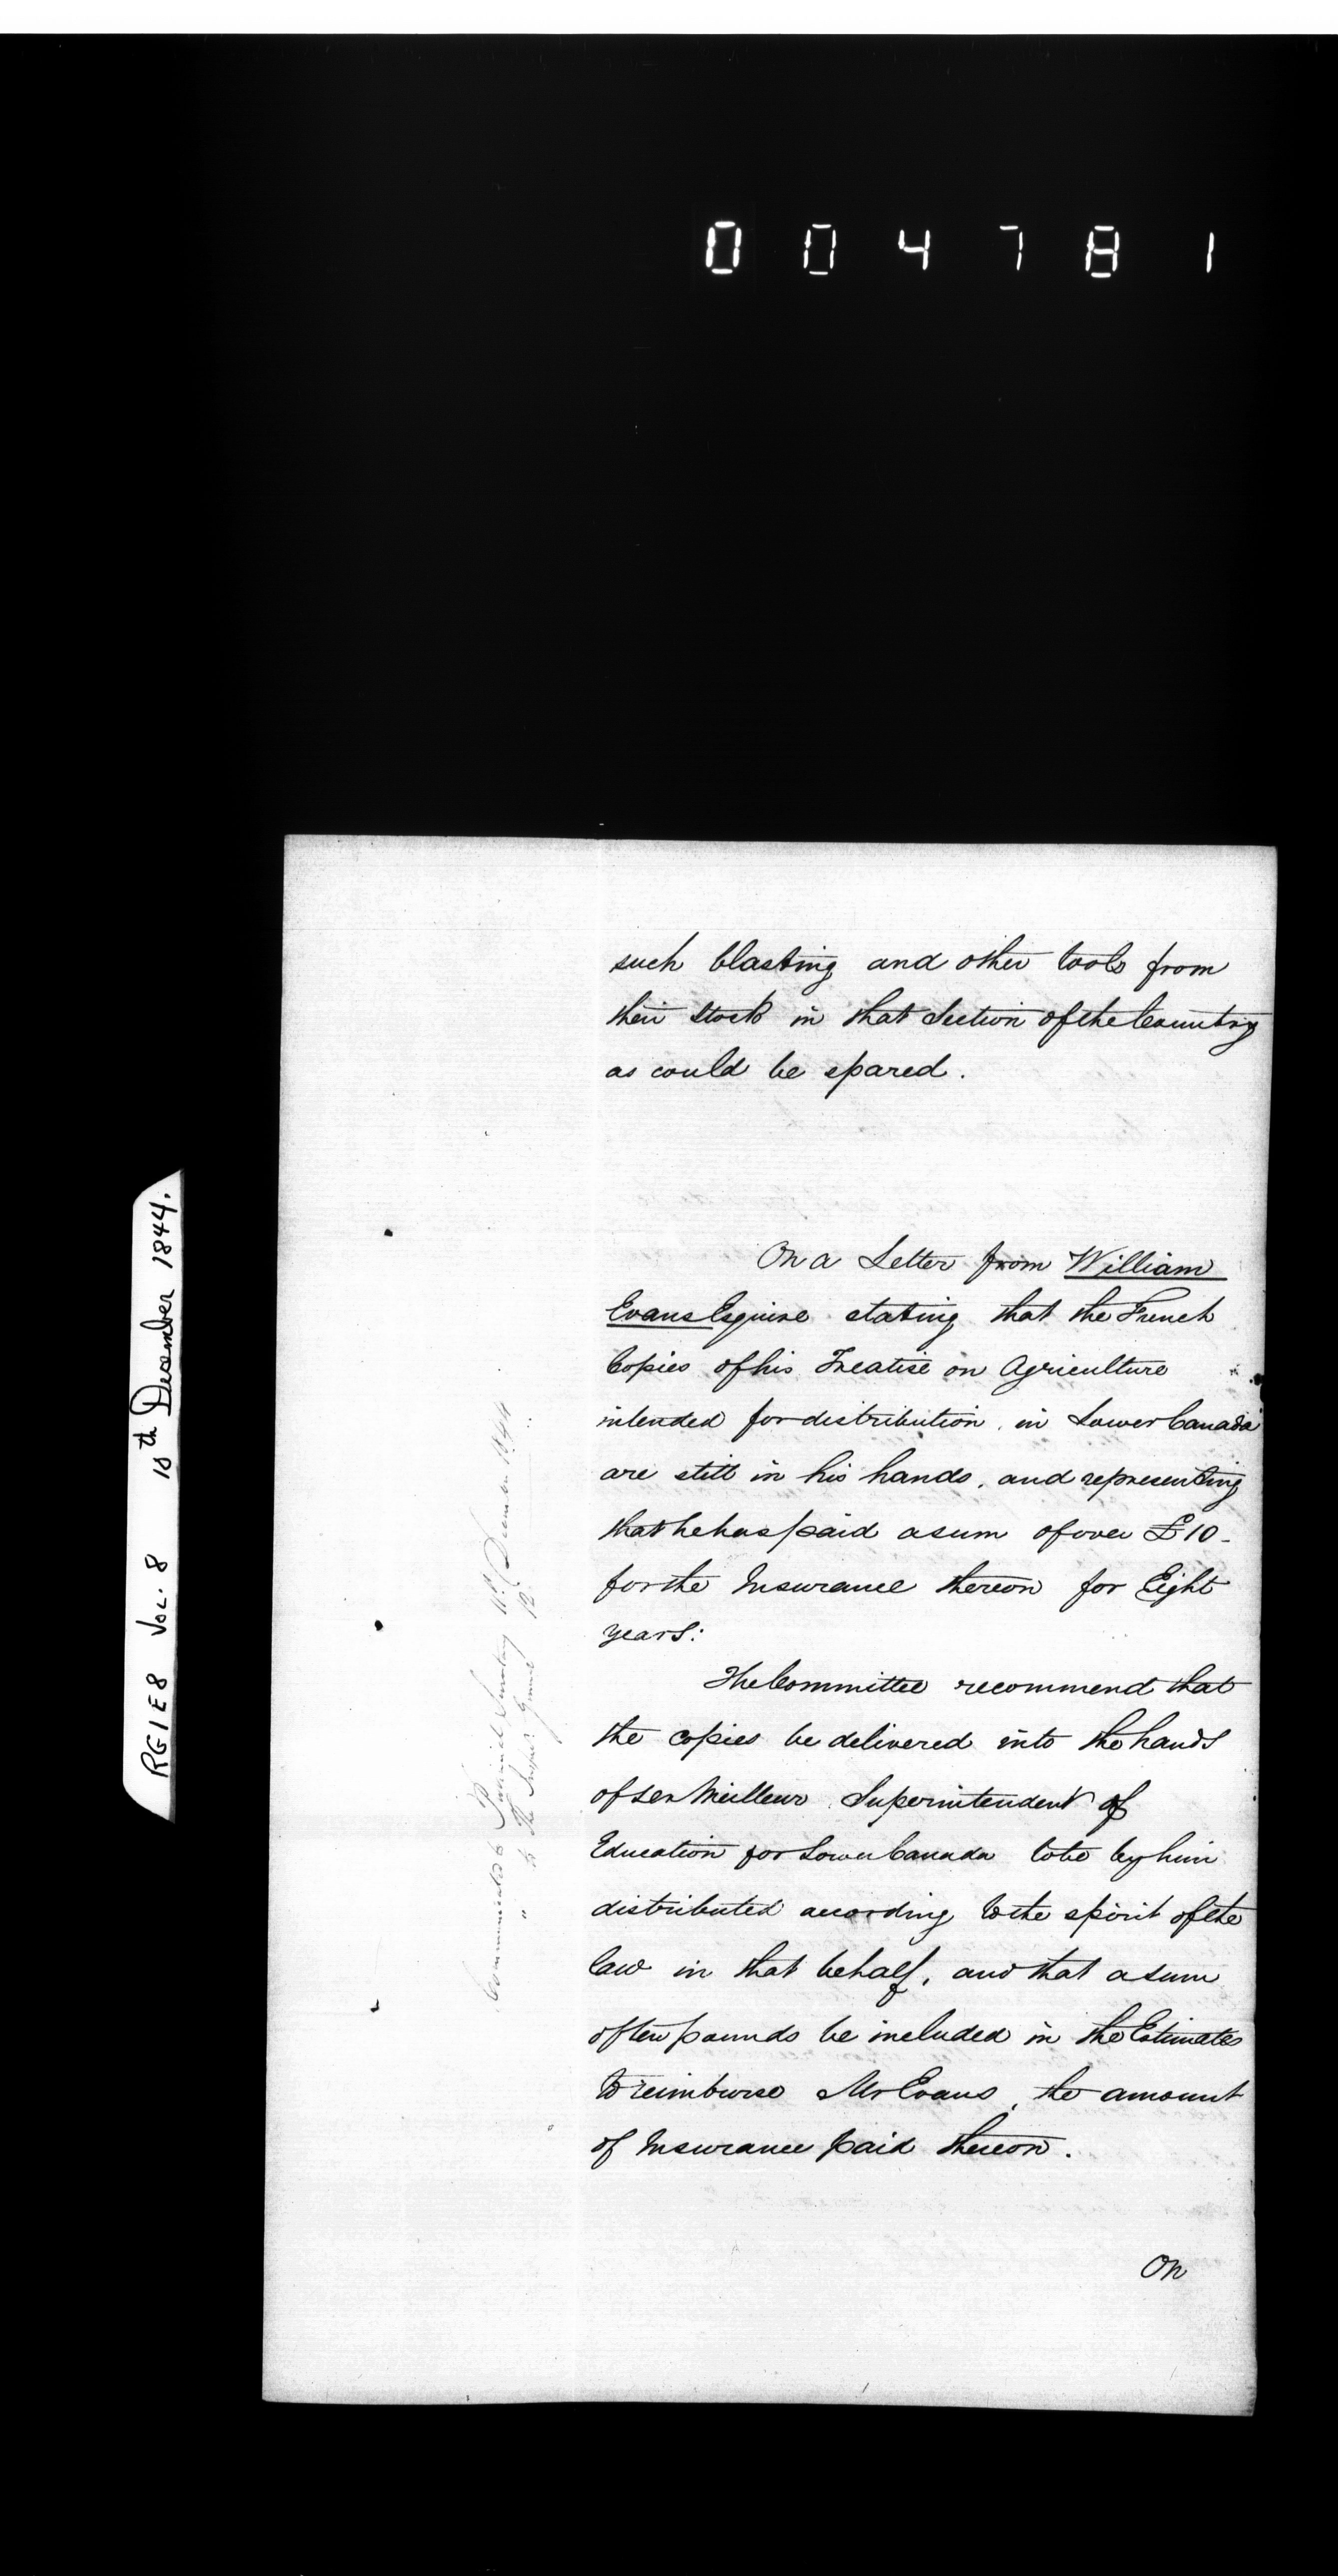 004781
such blasting and other tools from
their Stock in that Section of the Country
as could be spared.
On a Letter from William
Evans Esquire stating that the French
Copies of his Treatise on Agriculture
intended for distribution in Lower Canada
are still in his hands, and representing
that he has paid a sum of over £10-
for the Insurance thereon for Eight
years:
The Committee recommend that
the copies be delivered into the hands
of Meilleur Superintendent of
Education for Lower Canada to be by him
distributed according to the spirit of the
law in that behalf, and that a sum
of ten pounds be included in the Estimates
to reimburse Mr Evans, the amount
of Insurance paid thereon.
On
RG1E8 VOL. 8 10th December 1844.
Communicated to Provincial Secretary 11th December 1844
" to The Inspr General 12